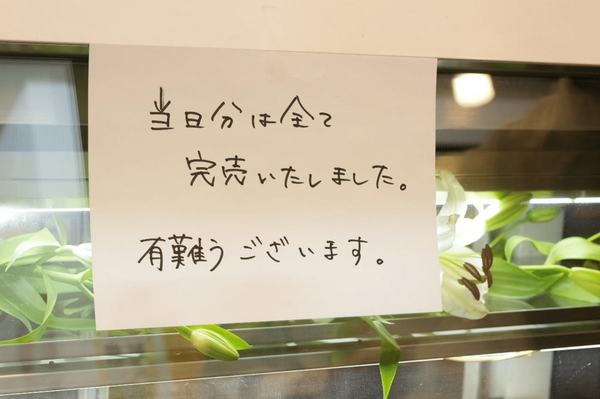 当日分は全て
完売いたしました。
有難うございます。